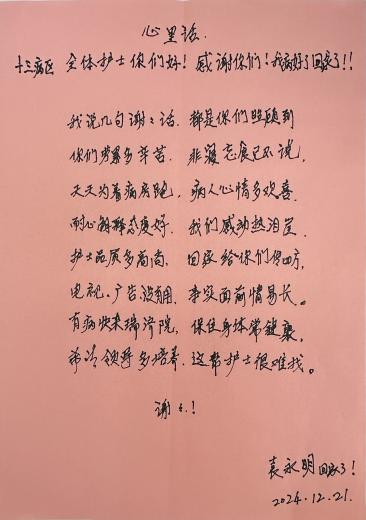 心里话.
十三病区 全体护士你们好！感谢你们！我病好了回家了!!
我说几句谢々话. 都是你们照顾到
你们劳累多辛苦. 废寝忘食已不说,
天天为着病房跑, 病人心情多欢喜.
耐心解释态度好. 我们感动热泪
护士品质多高尚. 回家给你们传四方,
电视.广告.没有用. 事实面前情易长。
有病快来瑞济院, 保住身体常健康,
希望领导多培养. 这帮护士很难找。
谢々!
袁永明回家了!
2024.12.21.